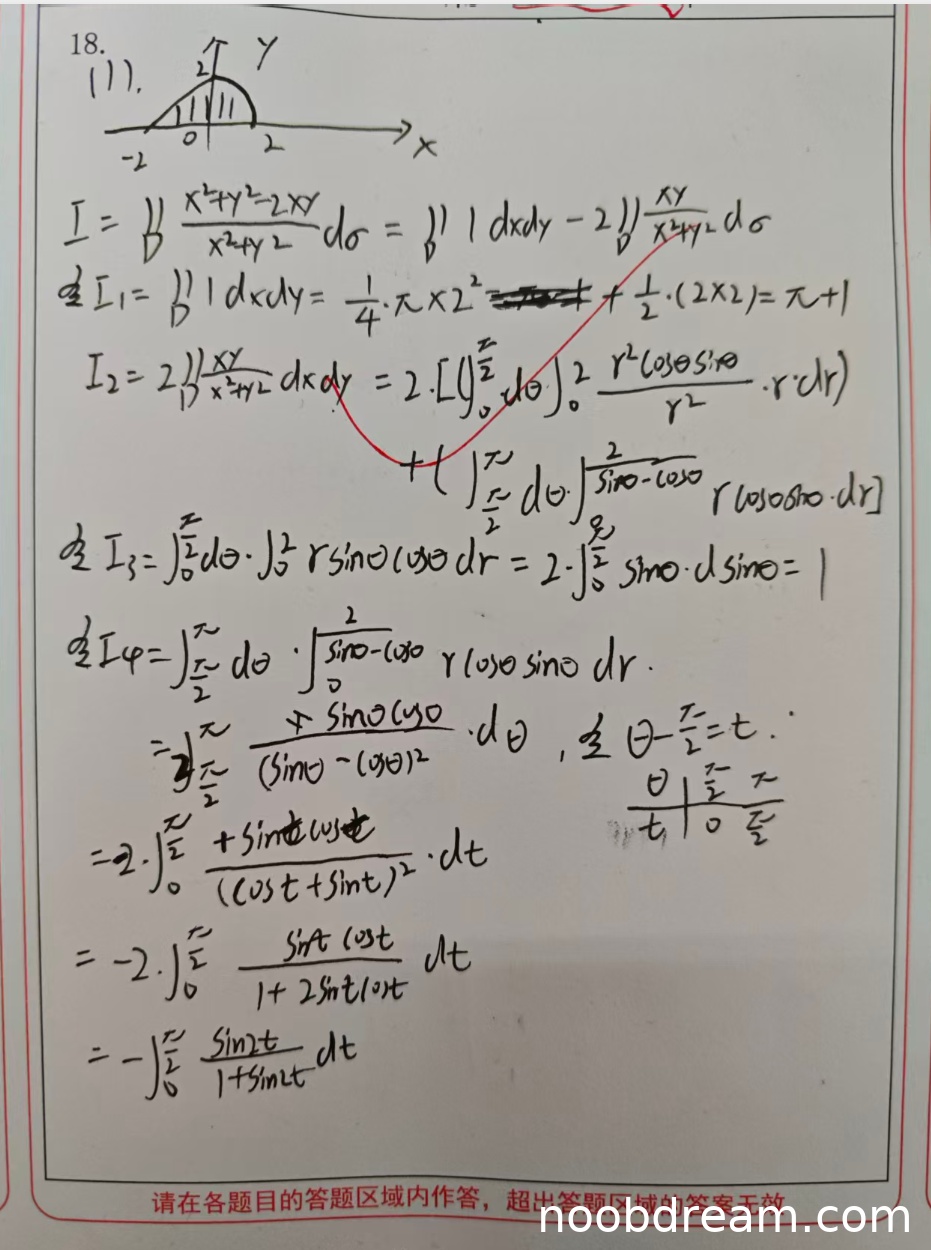 18.
(1).
2 y
-2 0 2 x
I = ∬_D (x²+y²-2xy)/(x²+y²) dσ = ∬_D 1 dxdy - 2∬_D xy/(x²+y²) dσ
全 I₁ = ∬_D 1 dxdy = 1/4·π×2² + 1/2·(2×2) = π+1
I₂ = 2∬_D xy/(x²+y²) dxdy = 2·[(∫_0^{π/2} dθ·∫_0^2 r²cosθsinθ/r² ·r·dr)
+(∫_{π/2}^{π} dθ·∫^{2/(sinθ-cosθ)} rcosθsinθ·dr]
全 I₃ = ∫_0^{π/2} dθ·∫_0^2 rsinθcosθdr = 2·∫_0^{π/2} sinθ·dsinθ = 1
全 I₄ = ∫_{π/2}^{π} dθ·∫_0^{2/(sinθ-cosθ)} rcosθsinθ dr.
= 2∫_{π/2}^{π} + sinθcosθ/(sinθ-cosθ)² ·dθ , 全 θ-π/2=t:
θ | π/2 π
t | 0 π/2
= -2·∫_0^{π/2} +sintcost/(cost+sint)² ·dt
= -2·∫_0^{π/2} sint cost/(1+2sintcost) dt
= -∫_0^{π/2} sin2t/(1+sin2t) dt
请在各题目的答题区域内作答，超出答题区域的答案无效
noobdream.com